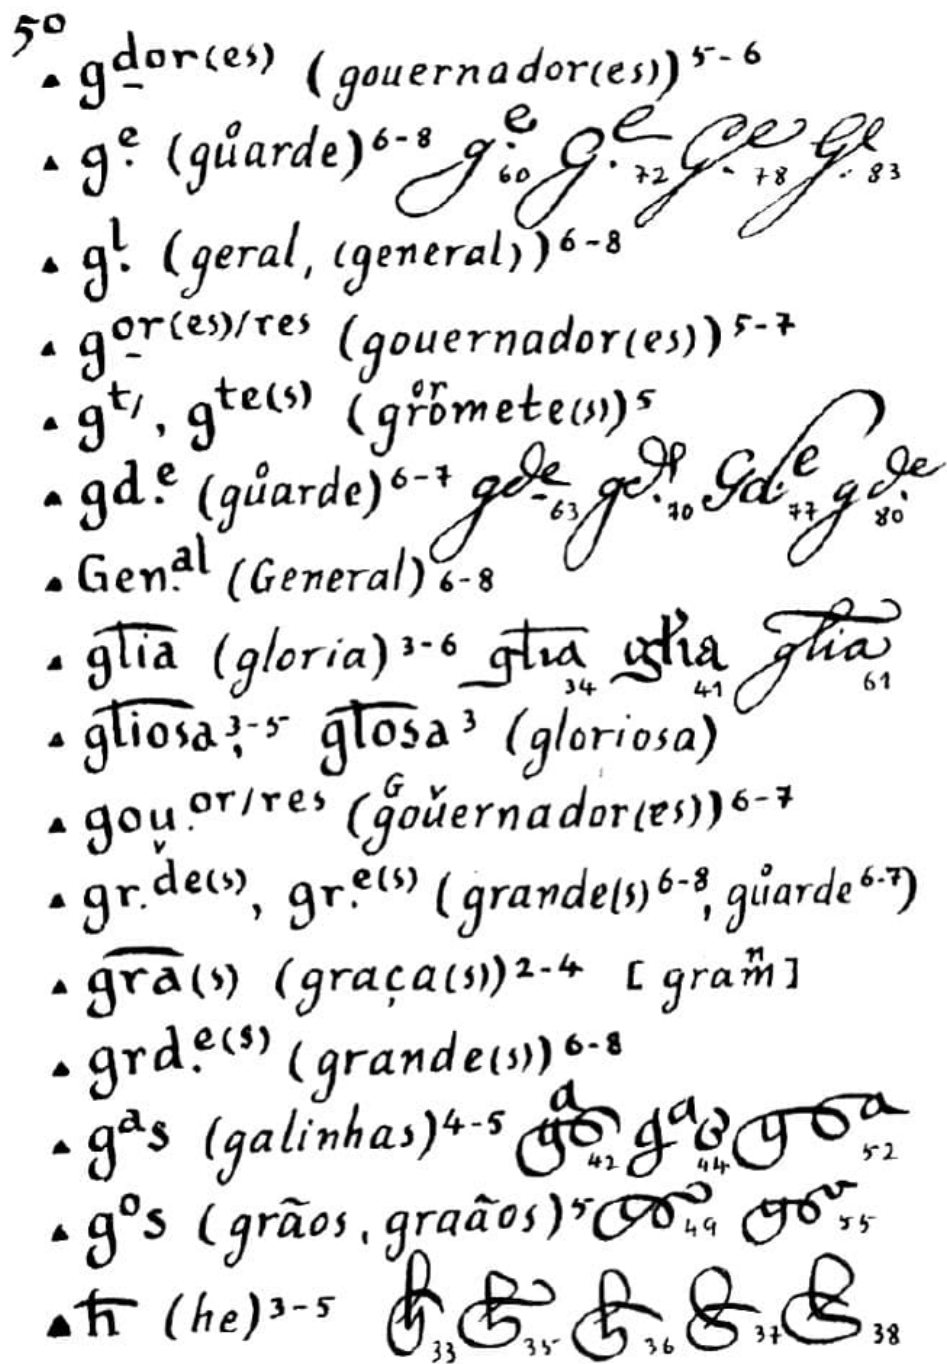 5º
▲ g̲ᵈᵒʳ⁽ᵉˢ⁾ (gouernador(es))⁵⁻⁶
▲ g.ᵉ (gůarde)⁶⁻⁸ g.ᵉ 60 G.ᵉ 72 G.ᵉ 78 G.ᵉ 83
▲ g.ˡ (geral, (general))⁶⁻⁸
▲ g̲ᵒʳ⁽ᵉˢ⁾/ʳᵉˢ (gouernador(es))⁵⁻⁷
▲ gᵗ/, gᵗᵉ⁽ˢ⁾ (gr͏ᵒʳomete(s))⁵
▲ gd.ᵉ (gůarde)⁶⁻⁷ gde 63 gd.ᵉ 70 Gd.ᵉ 77 gde 80
▲ Gen.ᵃˡ (General) 6-8
▲ g̅l̅i̅a̅ (gloria)³⁻⁶ glia 34 glia 41 glia 61
▲ g̅l̅i̅o̅s̅a;³⁻⁵ g̅l̅o̅s̅a³ (gloriosa)
▲ gou.ᵛ ᵒʳ/ʳᵉˢ (ᴳgoᵛuernador(es))⁶⁻⁷
▲ gr.ᵈᵉ⁽ˢ⁾, gr.ᵉ⁽ˢ⁾ (grande(s)⁶⁻⁸, gůarde⁶⁻⁷)
▲ g̅r̅a̅(s) (graça(s))²⁻⁴ [graⁿm]
▲ grd.ᵉ⁽ˢ⁾ (grande(s))⁶⁻⁸
▲ gᵃs (galinhas)⁴⁻⁵ gᵃs 42 gᵃs 44 gsᵃ 52
▲ gᵒs (grãos, graãos)⁵ gos 49 gos 55
▲ ħ (he)³⁻⁵ ħ 33 ħ 35 ħ 36 ħ 37 ħ 38